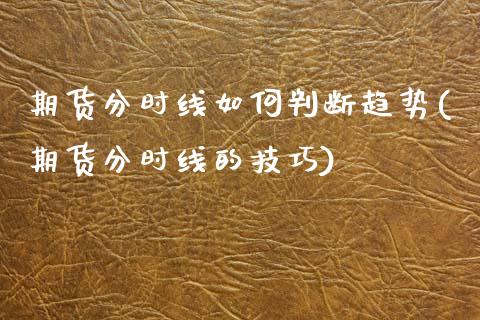 期货分时线如何判断趋势(
期货分时线的技巧)